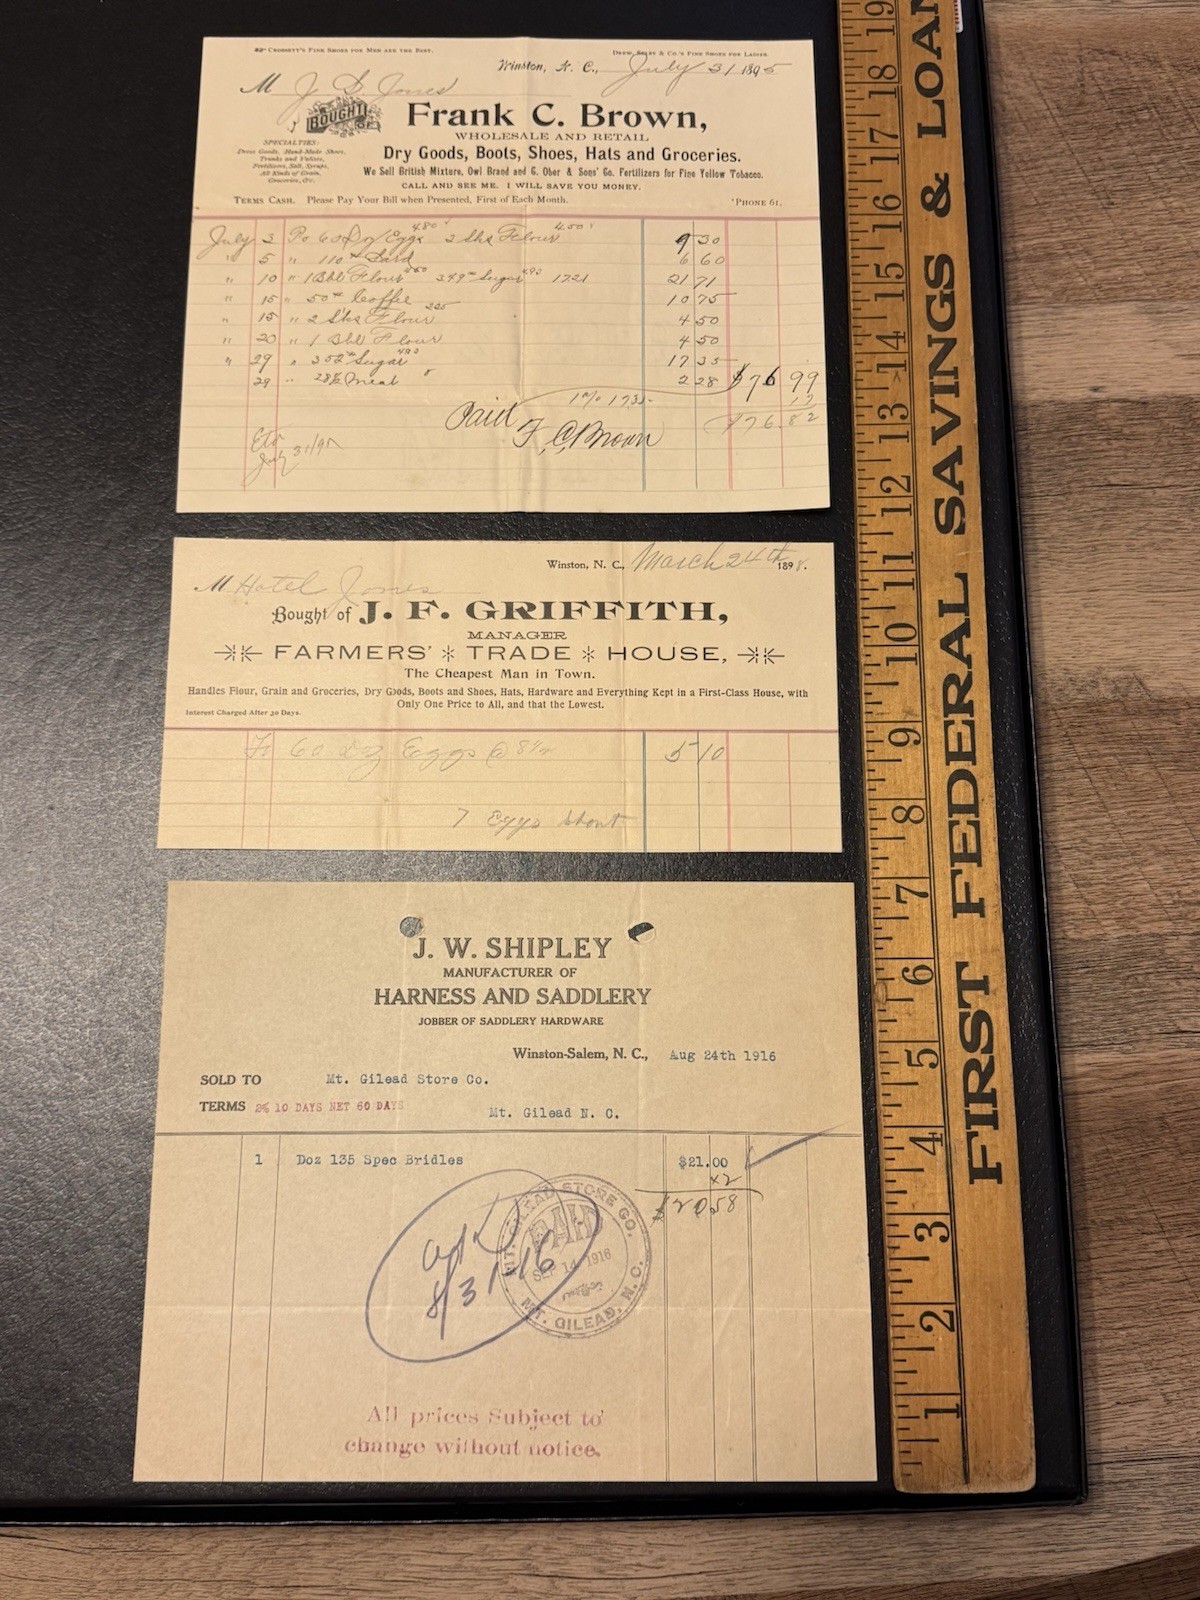 ☞ Crossett's Fine Shoes for Men are the Best.
Drew, Selby & Co.'s Fine Shoes for Ladies.
Winston, N. C., July 31 1895
M J D Jones
BOUGHT OF
Frank C. Brown,
WHOLESALE AND RETAIL
Dry Goods, Boots, Shoes, Hats and Groceries.
SPECIALTIES:
Dress Goods, Hand-Made Shoes,
Trunks and Valises,
Fertilizers, Salt, Syrups,
All Kinds of Grain,
Groceries, &c.
We Sell British Mixture, Owl Brand and G. Ober & Sons' Co. Fertilizers for Fine Yellow Tobacco.
CALL AND SEE ME. I WILL SAVE YOU MONEY.
TERMS CASH. Please Pay Your Bill when Presented, First of Each Month.
'PHONE 61.
July 3 To 60 Doz Eggs 480 2 Sks Flour 450 9 30
" 5 " 110# Lard 6 60
" 10 " 1 Bbl Flour 450 349# Sugar 493 1721 21 71
" 15 " 50# Coffee 10 75
" 15 " 2 Sks Flour 225 4 50
" 20 " 1 Bbl Flour 4 50
" 29 " 352# Sugar 493 17 35
29 " 28½ Meal 8 2 28 $76 99
1% 1735 17
$76.82
Paid
F. C. Brown
July 31/95
Winston, N. C., March 24th 1898.
M Hotel Jones
Bought of J. F. GRIFFITH,
MANAGER
FARMERS' TRADE HOUSE,
The Cheapest Man in Town.
Handles Flour, Grain and Groceries, Dry Goods, Boots and Shoes, Hats, Hardware and Everything Kept in a First-Class House, with
Only One Price to All, and that the Lowest.
Interest Charged After 30 Days.
To 60 Dz Eggs @ 8½ 5 10
7 Eggs Short
J. W. SHIPLEY
MANUFACTURER OF
HARNESS AND SADDLERY
JOBBER OF SADDLERY HARDWARE
Winston-Salem, N. C., Aug 24th 1916
SOLD TO Mt. Gilead Store Co.
TERMS 2% 10 DAYS NET 60 DAYS
Mt. Gilead N. C.
1 Doz 135 Spec Bridles $21.00
42
$20.58
8/31-16
MT. GILEAD STORE CO.
PAID
SEP 14 1916
MT. GILEAD, N. C.
All prices Subject to
change without notice.
FIRST FEDERAL SAVINGS & LOAN
1 2 3 4 5 6 7 8 9 10 11 12 13 14 15 16 17 18 19